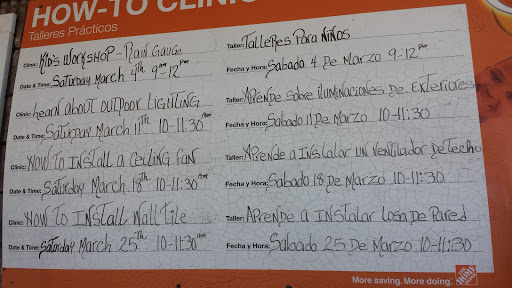 HOW-TO CLINIC
Talleres Prácticos
Clinic: Kid's Workshop - Rain Gauge
Date & Time: Saturday March 4th 9am-12pm
Clinic: Learn About Outdoor Lighting
Date & Time: Saturday March 11th 10-11:30am
Clinic: How to Install a Ceiling Fan
Date & Time: Saturday March 18th 10-11:30am
Clinic: How to Install Wall Tile
Date & Time: Saturday March 25th 10-11:30am
Taller: Talleres Para Niños
Fecha y Hora: Sabado 4 De Marzo 9-12pm
Taller: Aprende Sobre iluminaciones De Exteriores
Fecha y Hora: Sabado 11 De Marzo 10-11:30
Taller: Aprende a Instalar un Ventilador De techo
Fecha y Hora: Sabado 18 De Marzo 10-11:30
Taller: Aprende a Instalar Losa De Pared
Fecha y Hora: Sabado 25 De Marzo 10-11:30
More saving. More doing.
THE HOME DEPOT